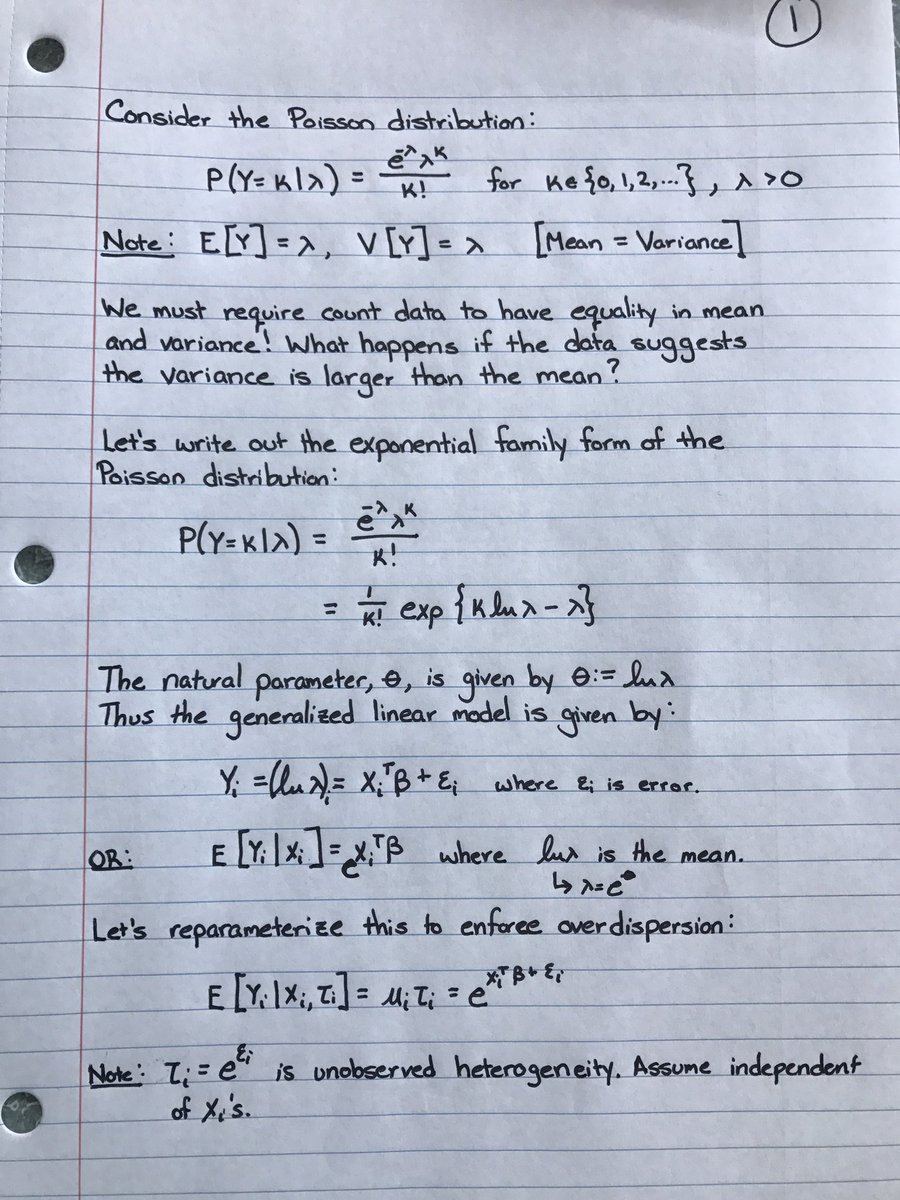 1
Consider the Poisson distribution:
P(Y=K|λ) = e^-λ λ^K / K! for K∈{0,1,2,...}, λ>0
Note: E[Y] = λ, V[Y] = λ [Mean = Variance]
We must require count data to have equality in mean
and variance! What happens if the data suggests
the variance is larger than the mean?
Let's write out the exponential family form of the
Poisson distribution:
P(Y=K|λ) = e^-λ λ^K / K!
= 1/K! exp{K ln λ - λ}
The natural parameter, θ, is given by θ:= ln λ
Thus the generalized linear model is given by:
Y_i = (ln λ)_i = X_i^T β + ε_i where ε_i is error.
OR: E[Y_i|X_i] = e^X_i^T β where ln λ is the mean.
↳ λ=e
Let's reparameterize this to enforce overdispersion:
E[Y_i|X_i, τ_i] = μ_i τ_i = e^X_i^T β + ε_i
Note: τ_i = e^ε_i is unobserved heterogeneity. Assume independent
of X_i's.